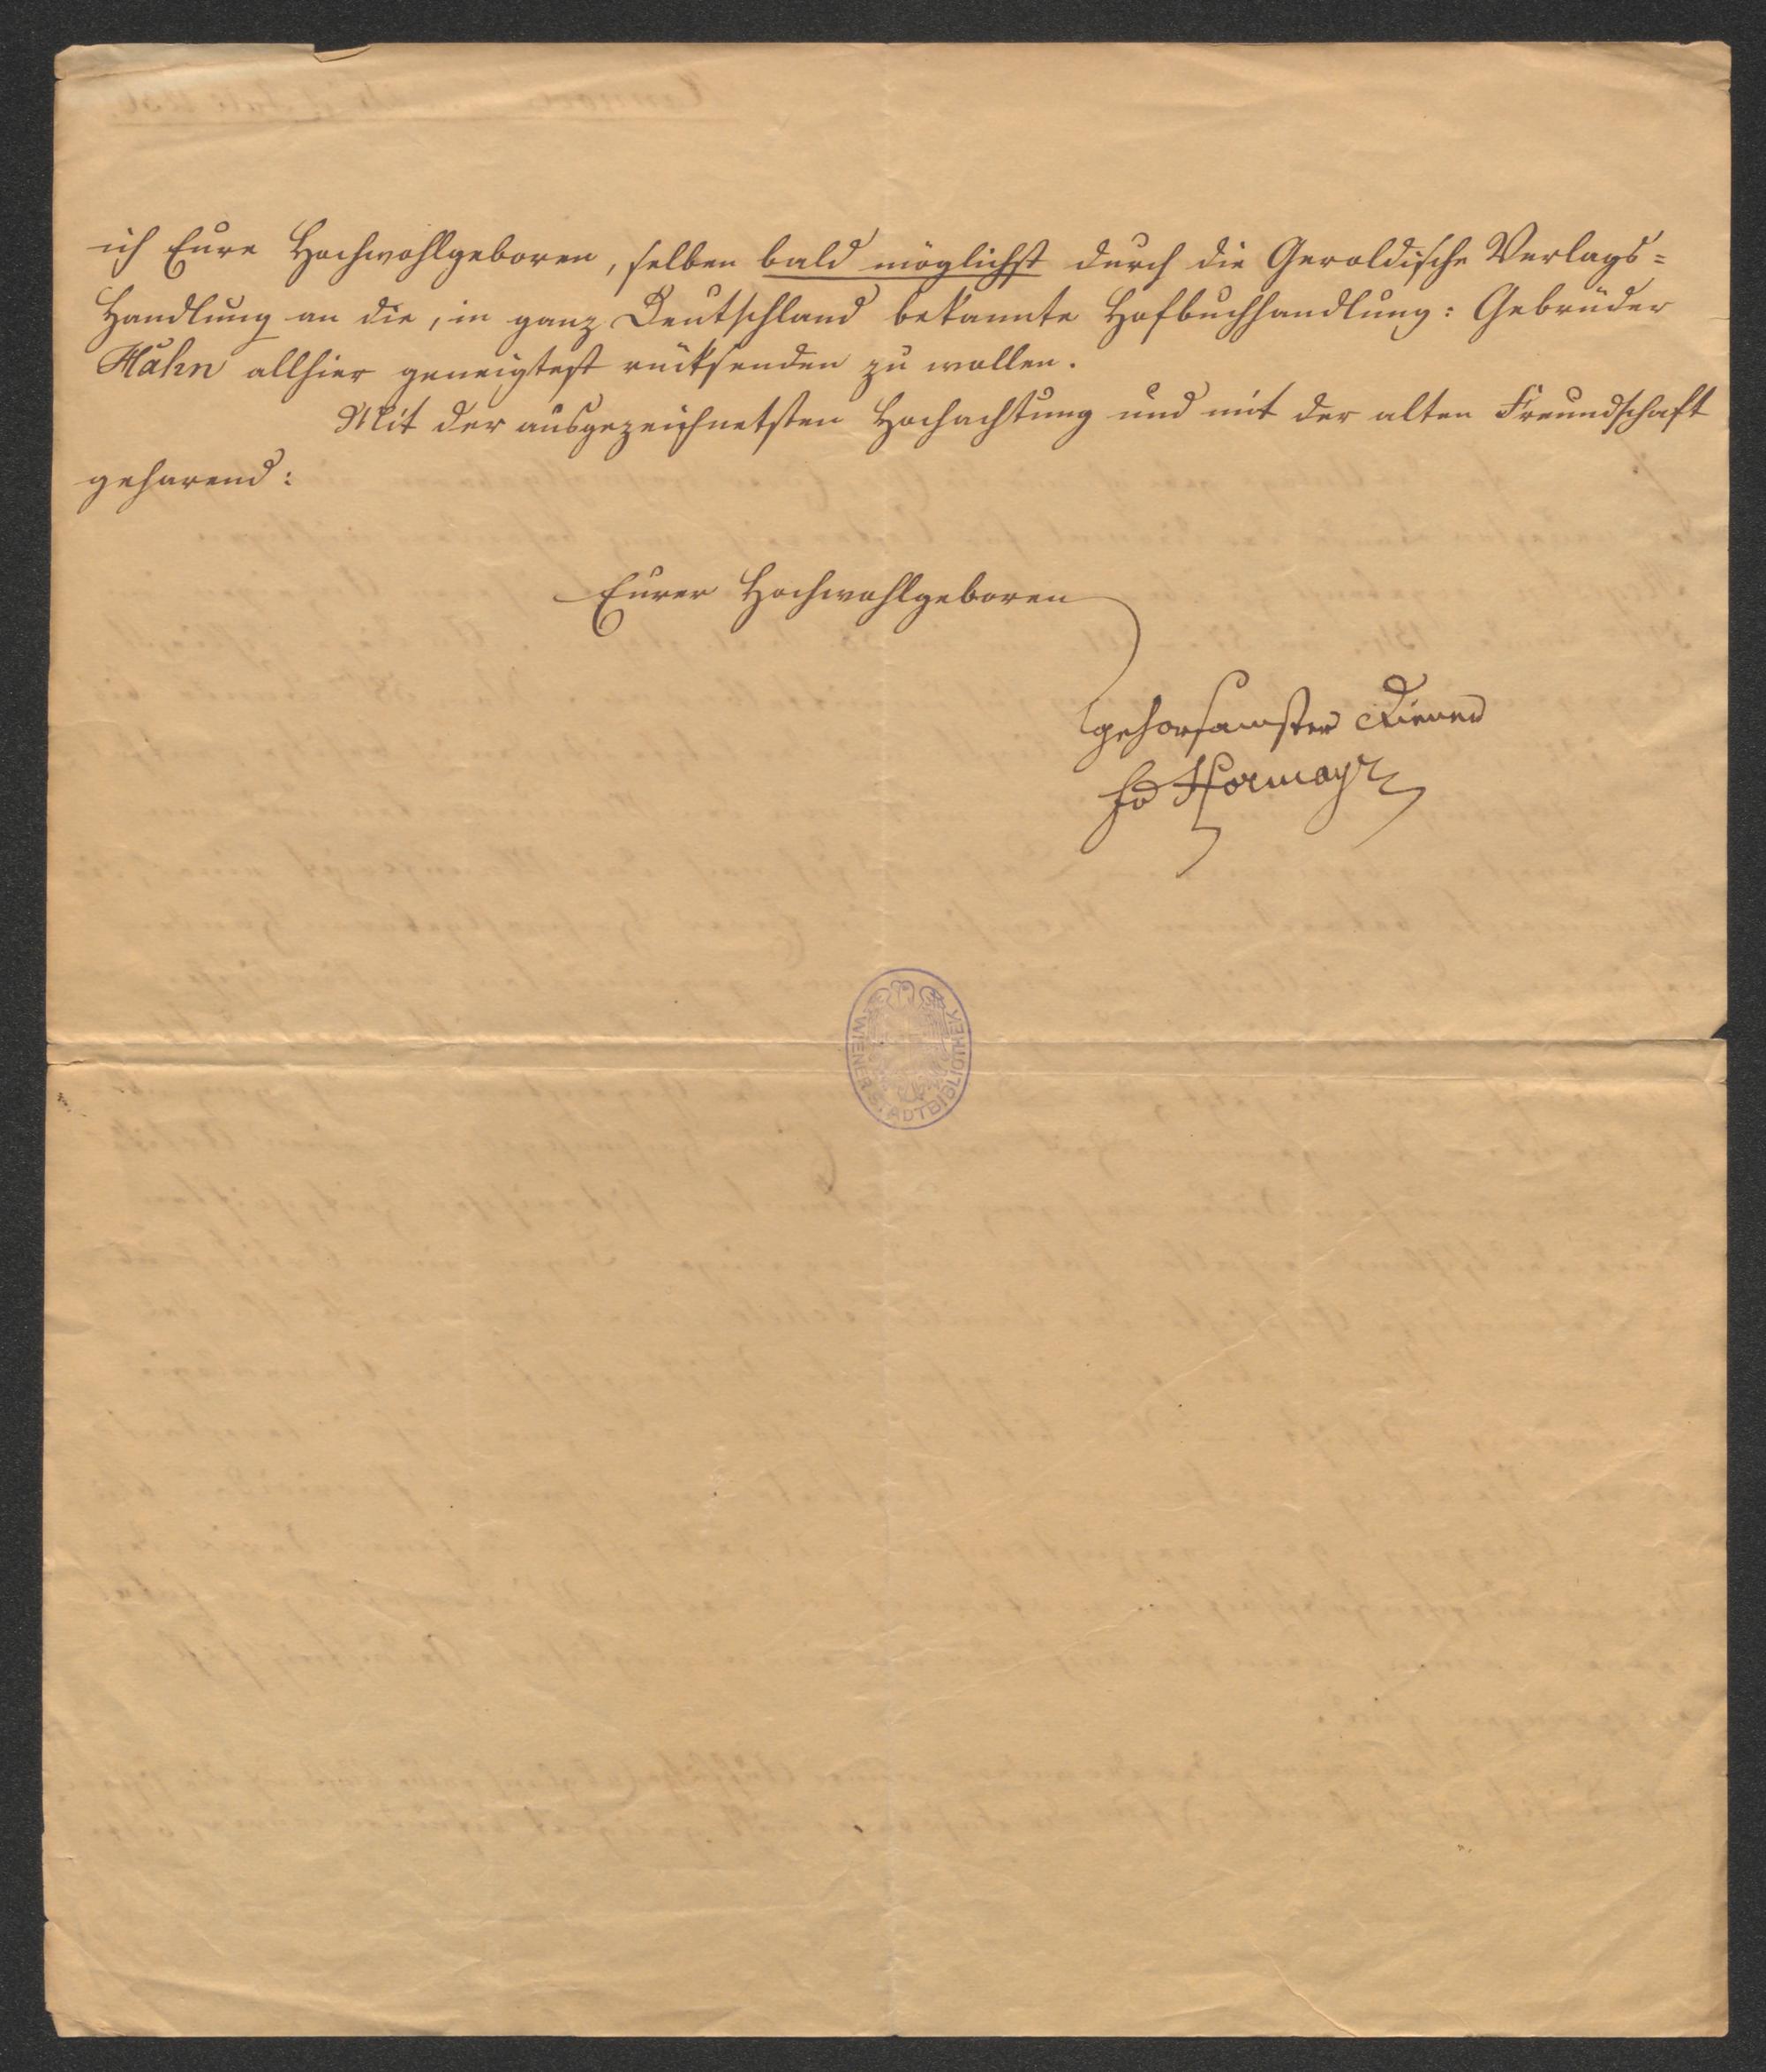 ich Eure Hochwohlgeboren, selben bald möglichst durch die Geroldische Verlags=
Handlung an die, in ganz Deutschland bekannte Hofbuchhandlung: Gebrüder
Hahn allhier geneigtest rücksenden zu wollen.
Mit der ausgezeichnetsten Hochachtung und mit der alten Freundschaft
geharend:
Eurer Hochwohlgeboren
gehorsamster Diener
Hormayr
WIENER STADTBIBLIOTHEK